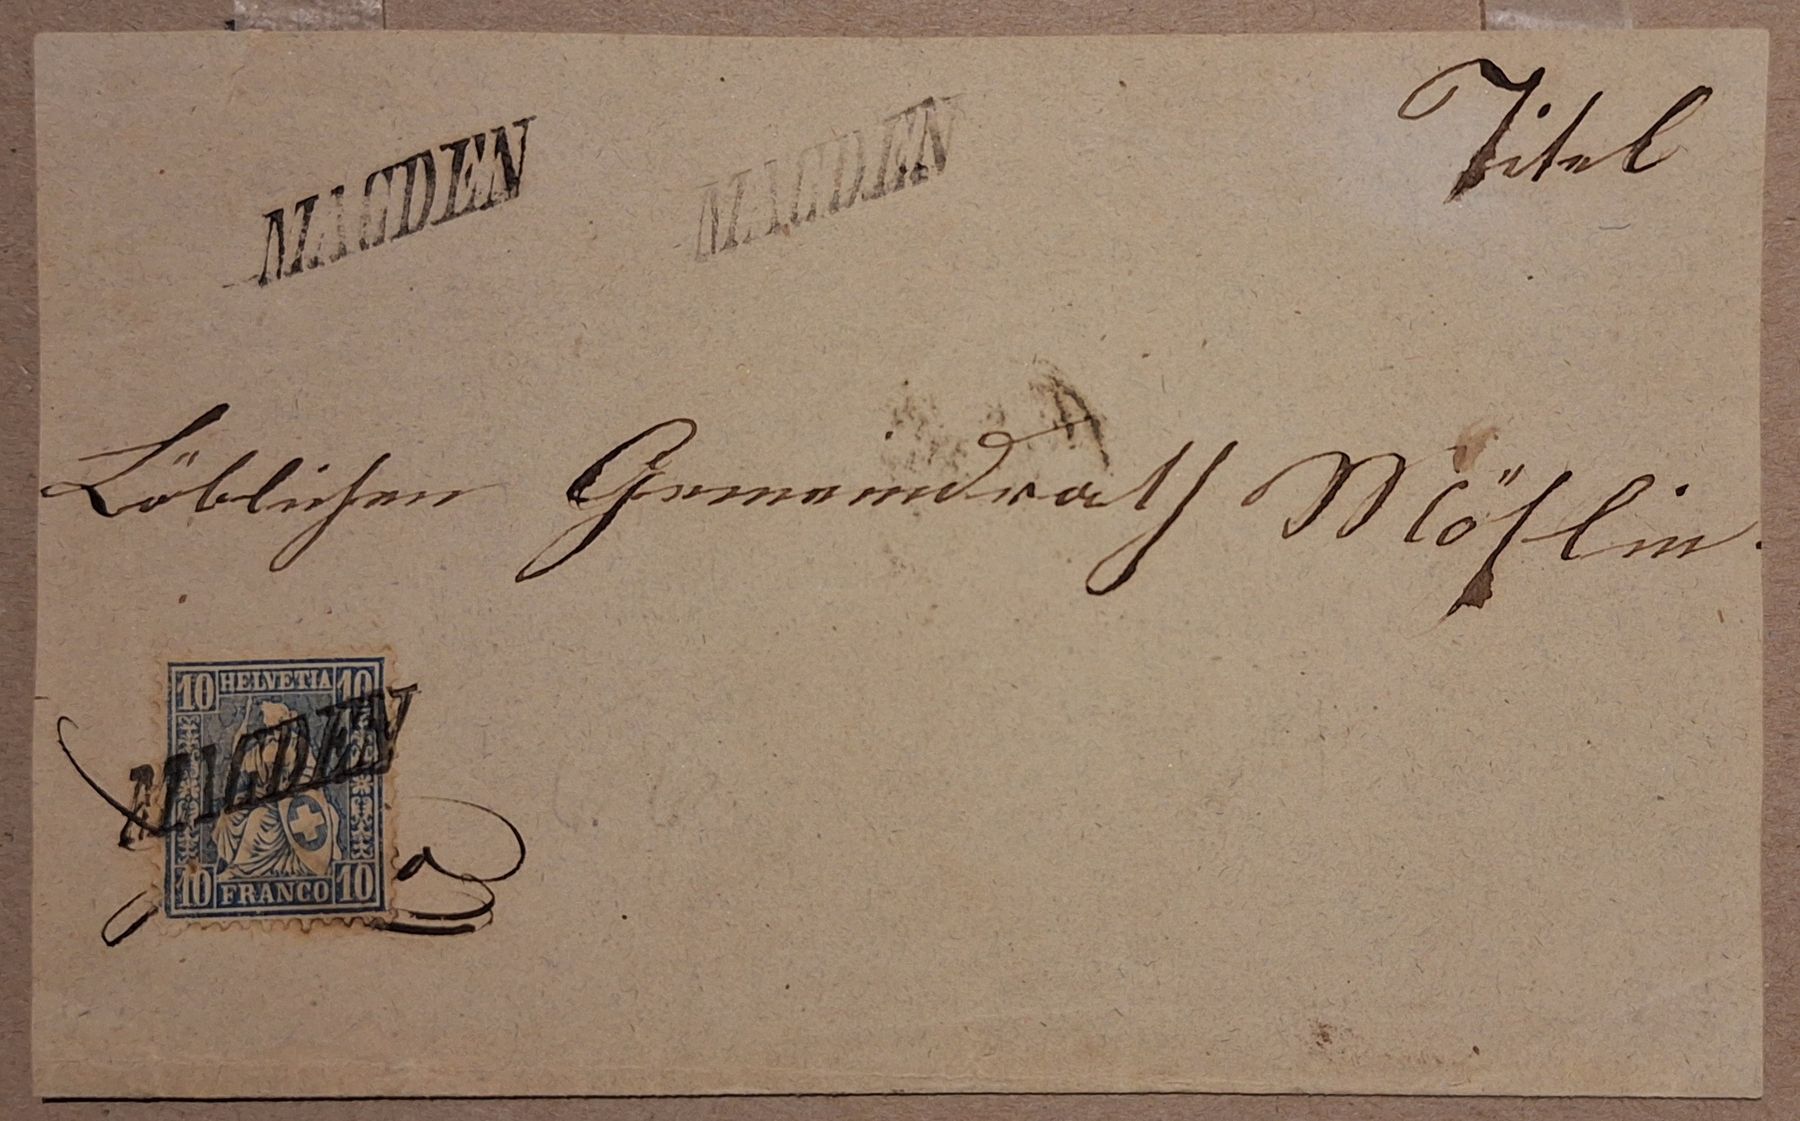 Titel
MAGDEN MAGDEN
Löblichen Gemeindrath Möhlin.
10 HELVETIA 10
MAGDEN
10 FRANCO 10